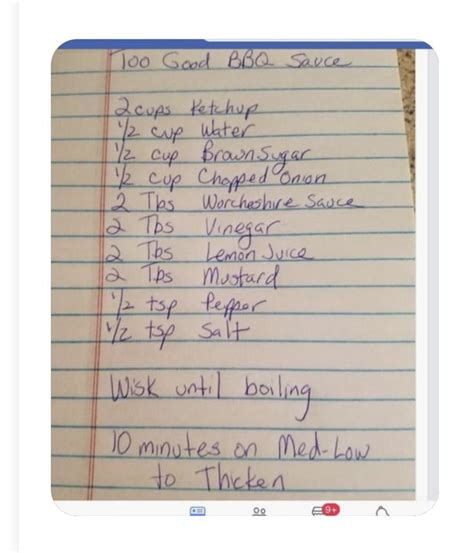 Too Good BBQ Sauce
2 cups Ketchup
1/2 cup Water
1/2 cup Brown Sugar
1/2 cup Chopped Onion
2 Tbs Worcheshire Sauce
2 Tbs Vinegar
2 Tbs Lemon Juice
2 Tbs Mustard
1/2 tsp Pepper
1/2 tsp Salt
Wisk until boiling
10 minutes on Med-Low
to Thcken
9+